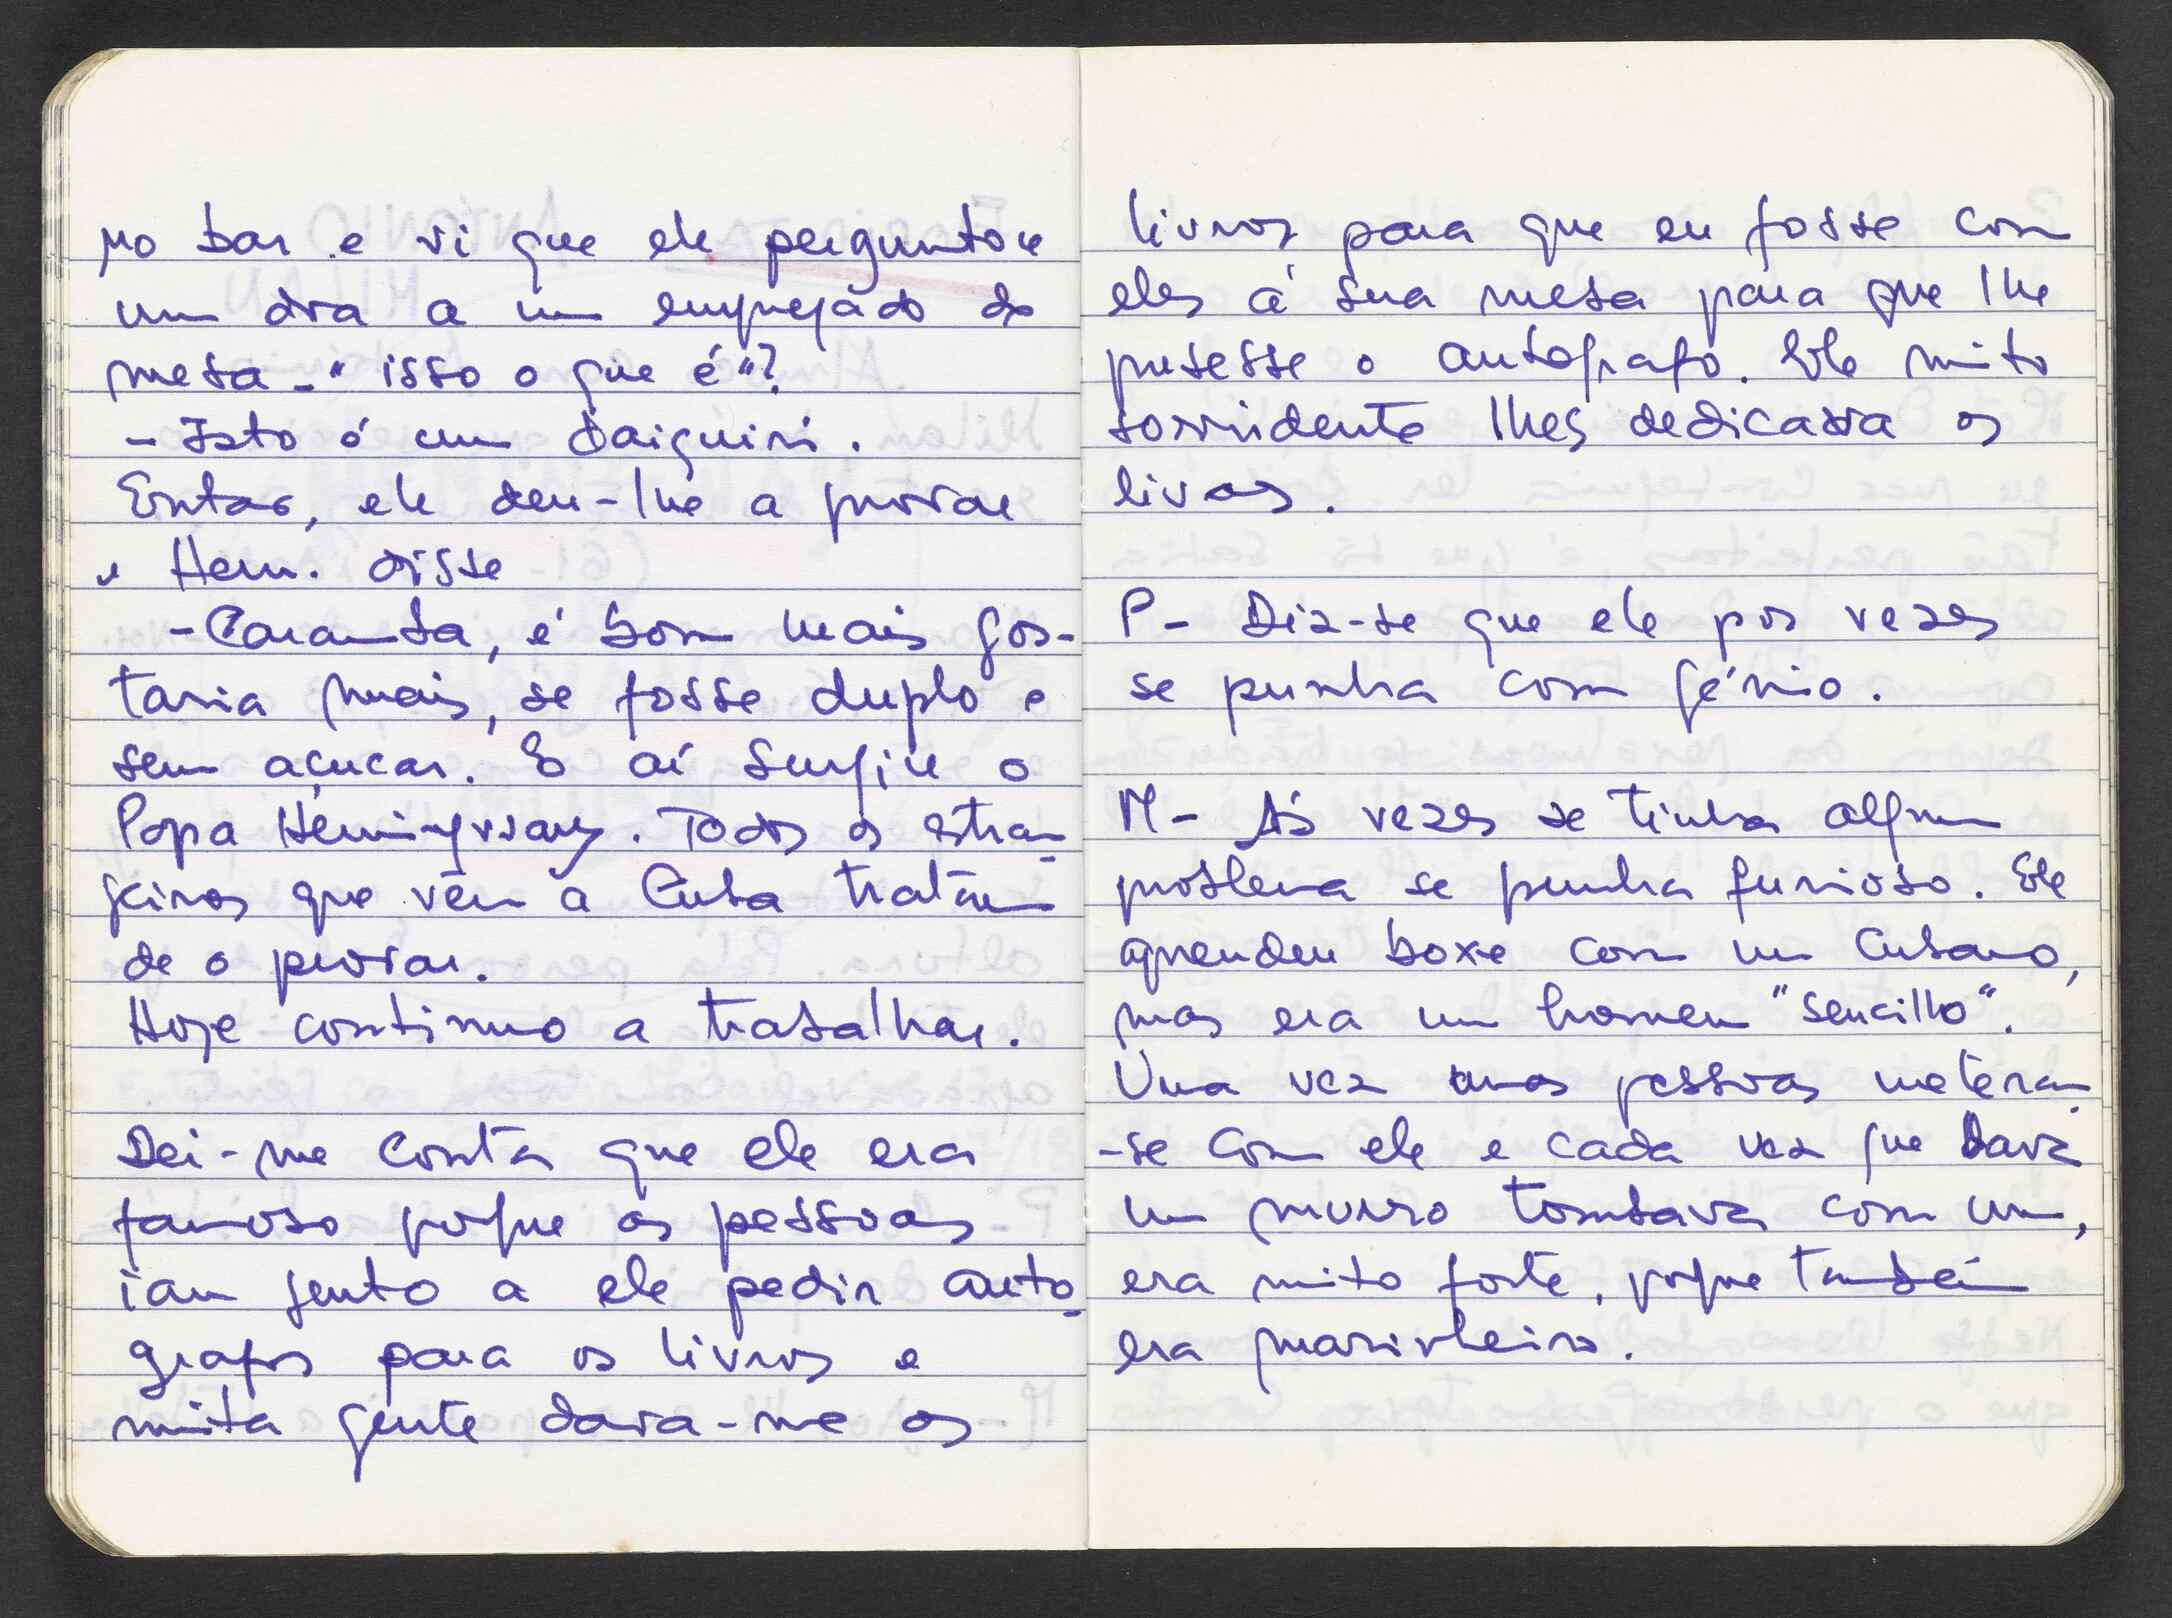 no bar e vi que ele perguntou
um dia a um empregado de
mesa - "isso o que é"?
- Isto é um daiquiri.
Então, ele deu-lhe a provar
e Hem. disse
- Caramba, é bom mais gos-
taria mais, se fosse duplo e
sem açucar. E aí surgiu o
Popa Hemingway. Todos os estran-
geiros que vêm a Cuba tratam
de o provar.
Hoje continuo a trabalhar.
Dei-me conta que ele era
famoso porque as pessoas
iam junto a ele pedir auto-
grafos para os livros e
muita gente dava-me os
livros para que eu fosse com
eles á sua mesa para que lhe
pusesse o autografo. Ele muito
sorridente lhes dedicava os
livros.
P- Diz-se que ele por vezes
se punha com génio.
M- Ás vezes se tinha algum
problema se punha furioso. Ele
aprendeu boxe com um Cubano,
mas era um homem "sencillo".
Uma vez umas pessoas meteram-
-se com ele e cada vez que dava
um murro tombava com um,
era muito forte, porque também
era marinheiro.